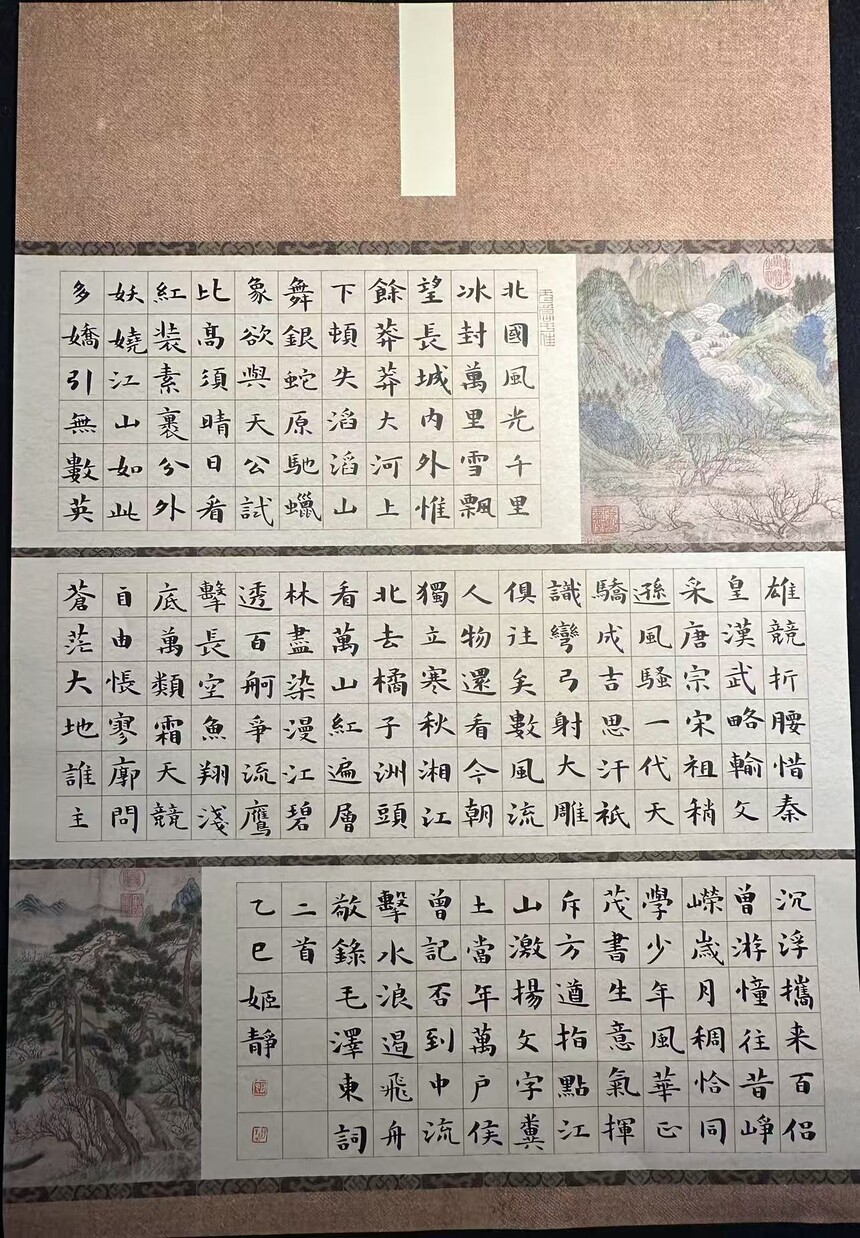 北國風光千里
冰封萬里雪飄
望長城内外惟
餘莽莽大河上
下頓失滔滔山
舞銀蛇原馳蠟
象欲與天公試
比髙須晴日看
紅裝素裹兮外
妖嬈江山如此
多嬌引無數英
雄競折腰惜秦
皇漢武略輸文
采唐宗宋祖稍
遜風騷一代天
驕成吉思汗祇
識彎弓射大雕
俱往矣數風流
人物還看今朝
獨立寒秋湘江
北去橘子洲頭
看萬山紅遍層
林盡染漫江碧
透百舸爭流鷹
擊長空魚翔淺
底萬類霜天競
自由悵寥廓問
蒼茫大地誰主
沉浮攜来百侶
曾游憧往昔崢
嶸歲月稠恰同
學少年風華正
茂書生意氣揮
斥方遒指點江
山激揚文字糞
土當年萬戶侯
曾記否到中流
擊水浪遏飛舟
敬錄毛澤東詞
二首
乙巳姬靜